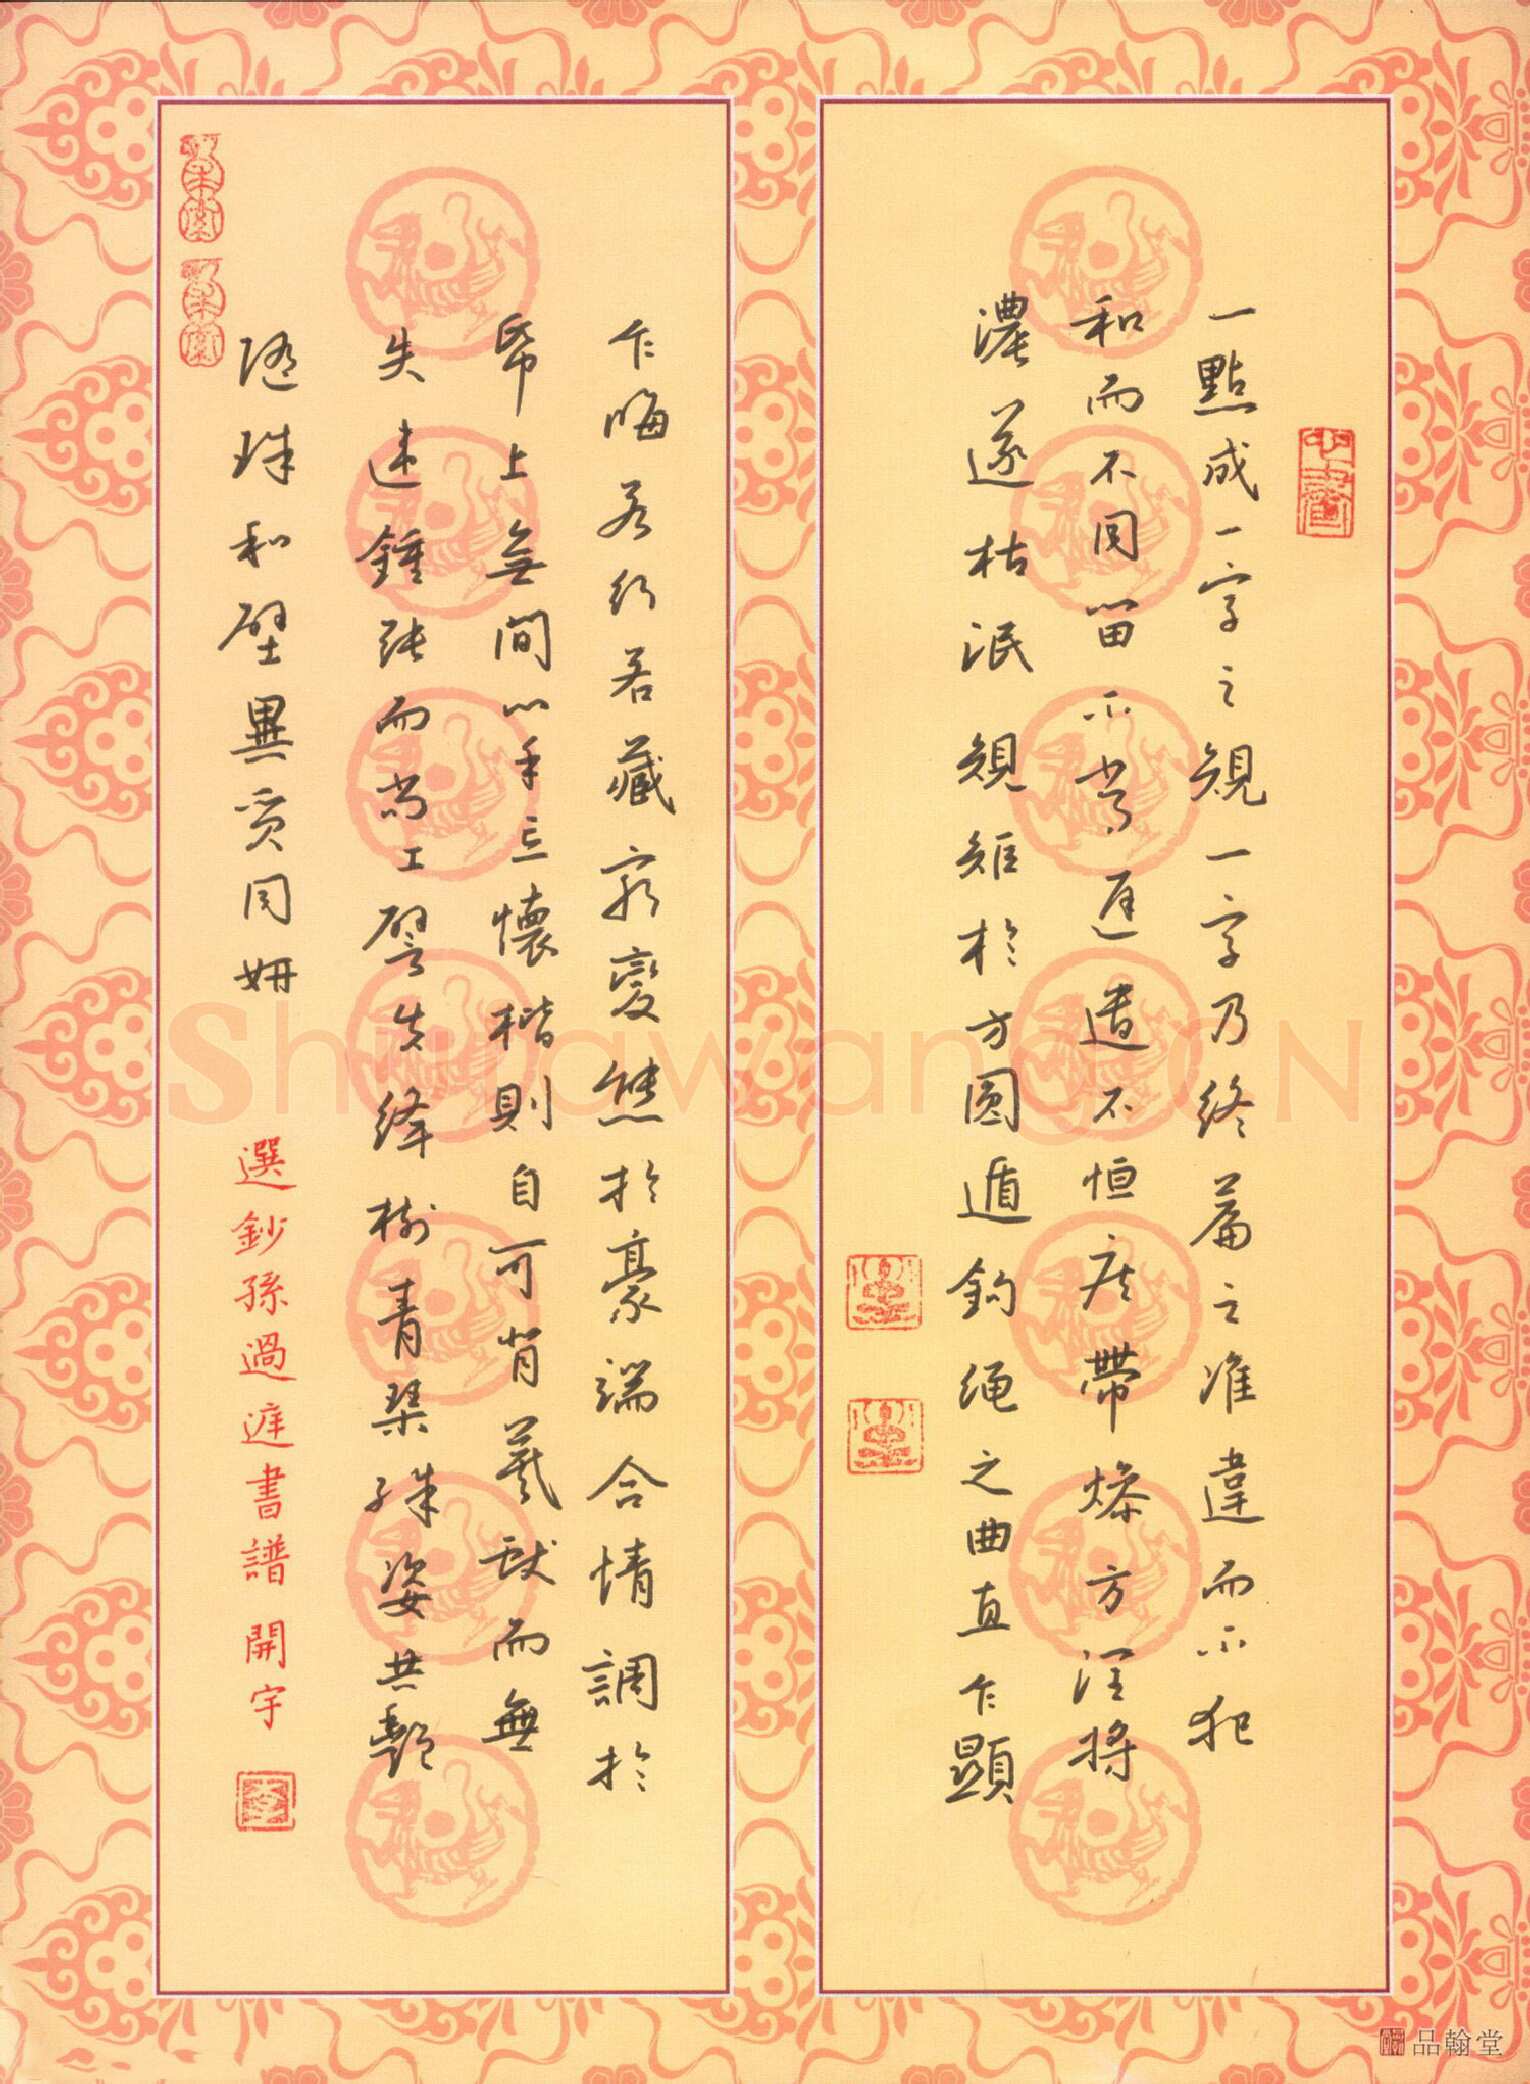 一點成一字之規一字乃終篇之准違而不犯
和而不同留不常遲遣不恒疾帶燥方潤將
濃遂枯泯規矩於方圓遁鈎繩之曲直乍顯
乍晦若行若藏窮變態於豪端合情調於
帋上無間心手忘懷楷則自可背羲獻而無
失違鍾張而尚工譬夫絳樹青琴殊姿共艷
隨珠和璧異質同妍
選鈔孫過庭書譜 開宇
ShufawangCN
品翰堂